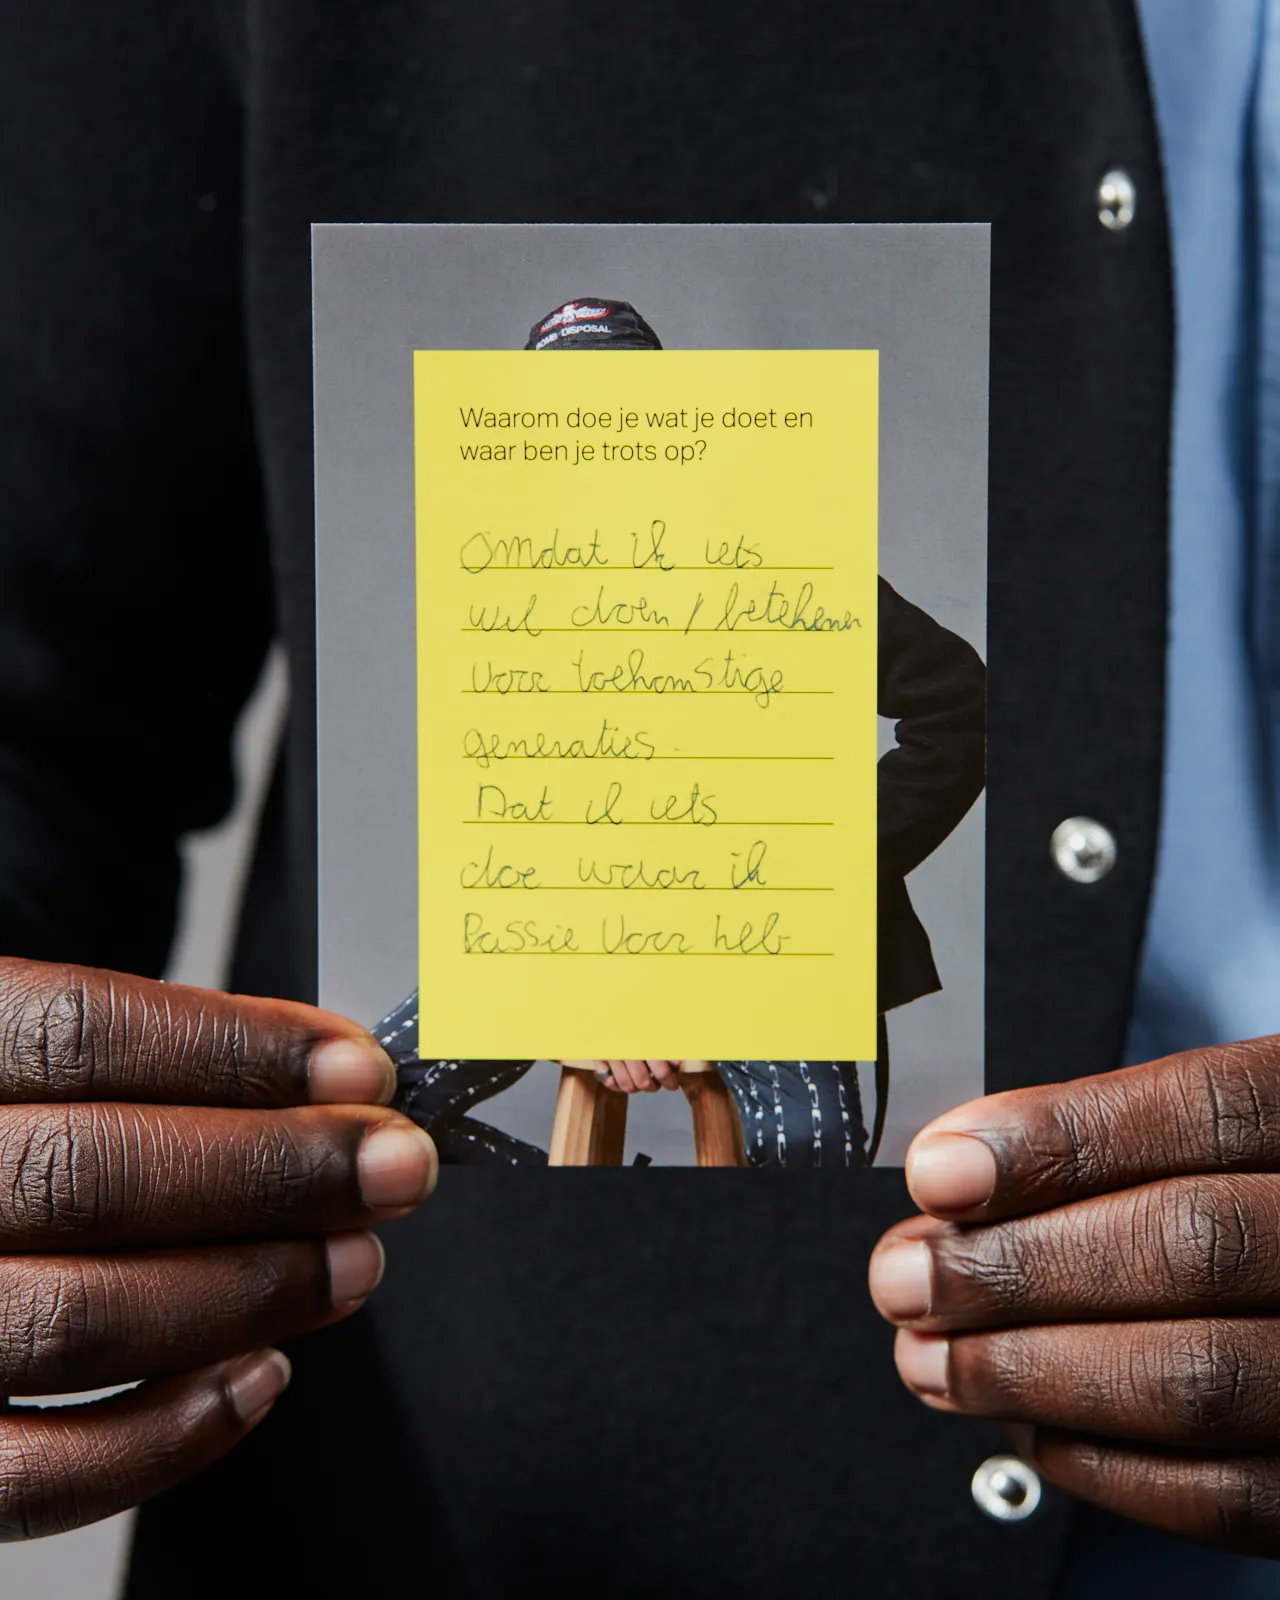 BOMB DISPOSAL
Waarom doe je wat je doet en
waar ben je trots op?
Omdat ik iets
wil doen / betekenen
voor toekomstige
generaties.
Dat ik iets
doe waar ik
Passie voor heb